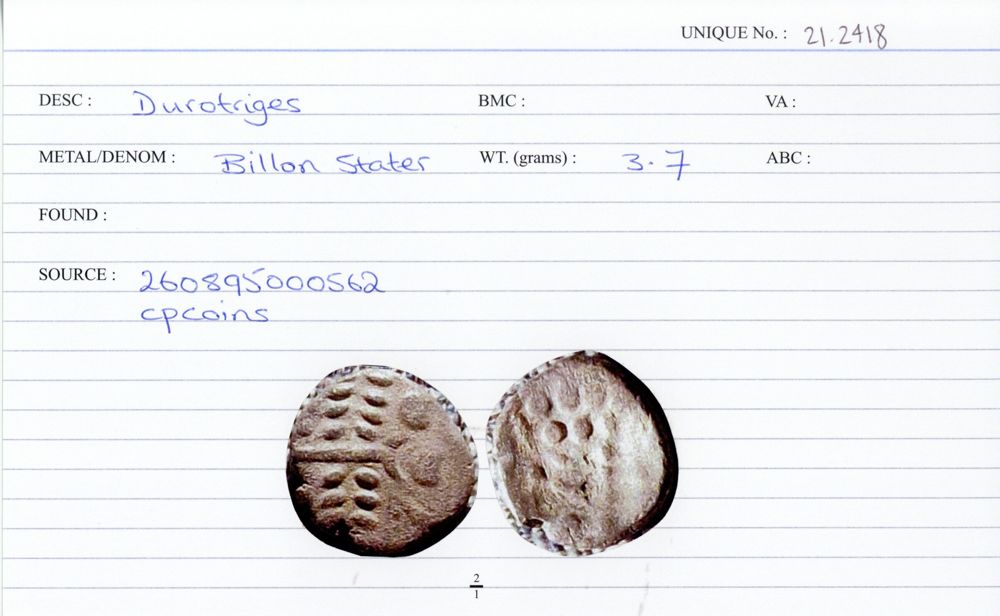 UNIQUE No. : 21.2418
DESC : Durotriges BMC : VA :
METAL/DENOM : Billon Stater WT. (grams) : 3.7 ABC :
FOUND :
SOURCE : 260895000562
cpcoins
2
1